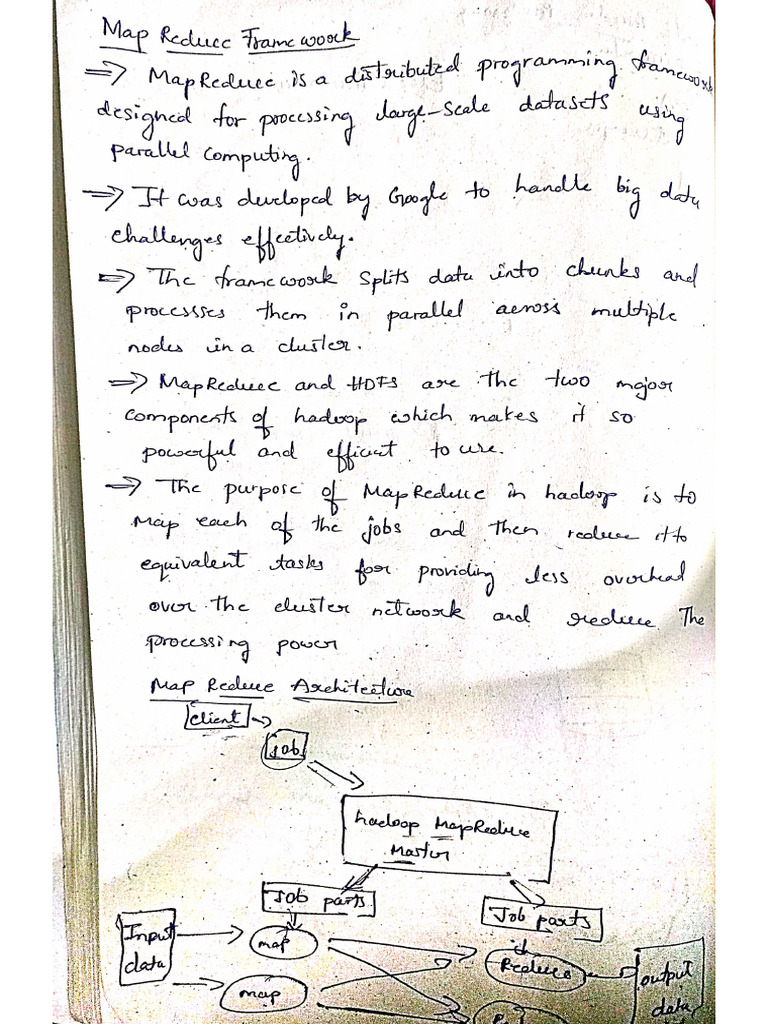 Map Reduce Framework
=> MapReduce is a distributed programming framework
designed for processing large-scale datasets using
parallel computing.
=> It was developed by Google to handle big data
challenges effectively.
=> The framework splits data into chunks and
processes them in parallel across multiple
nodes in a cluster.
=> MapReduce and HDFS are the two major
components of hadoop which makes it so
powerful and efficient to use.
=> The purpose of MapReduce in hadoop is to
Map each of the jobs and then reduce it to
equivalent tasks for providing less overhead
over the cluster network and reduce The
processing power
Map Reduce Architecture
client
job
hadoop MapReduce
Master
Job parts
Job parts
Input
data
map
Reduce
output
data
map